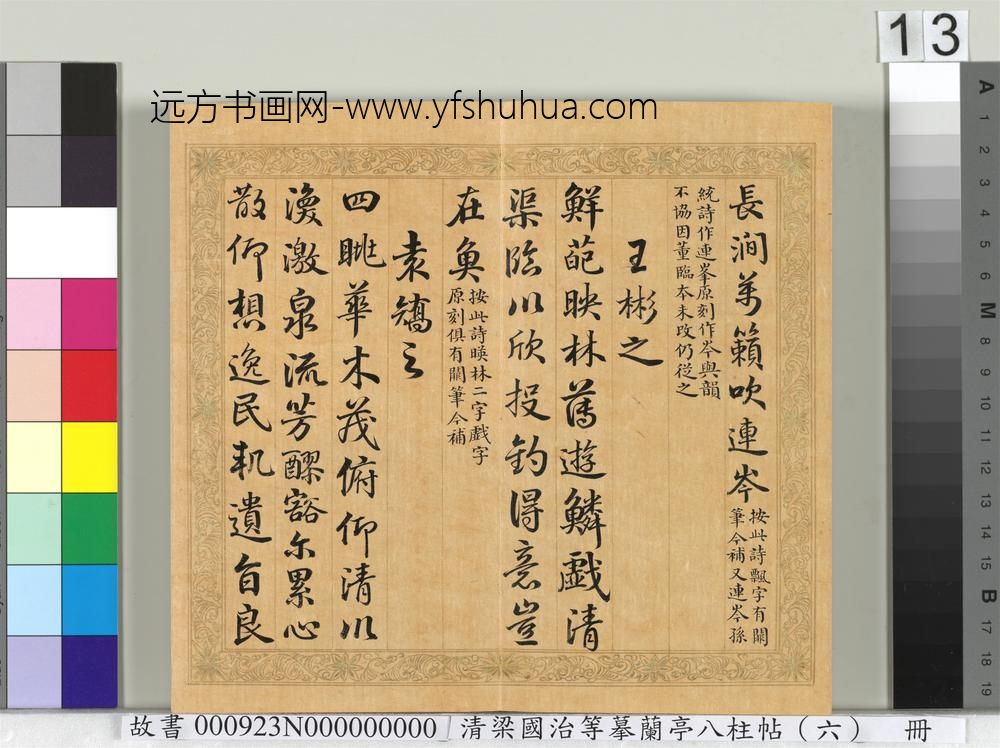 13
远方书画网-www.yfshuhua.com
長澗萬籟吹連岑
按此詩飄字有闕
筆今補又連岑孫
統詩作連峯原刻作岑與韻
不協因董臨本未改仍從之
王彬之
鮮葩映林薄遊鱗戲清
渠臨川欣投釣得意豈
在魚
按此詩暎林二字戲字
原刻俱有闕筆今補
袁嶠之
四眺華木茂俯仰清川
渙激泉流芳醪豁尔累心
散仰想逸民軌遺音良
故書 000923N000000000 清梁國治等摹蘭亭八柱帖（六） 冊
A 1 2 3 4 5 6 M 8 9 10 11 12 13 14 15 B 17 18 19